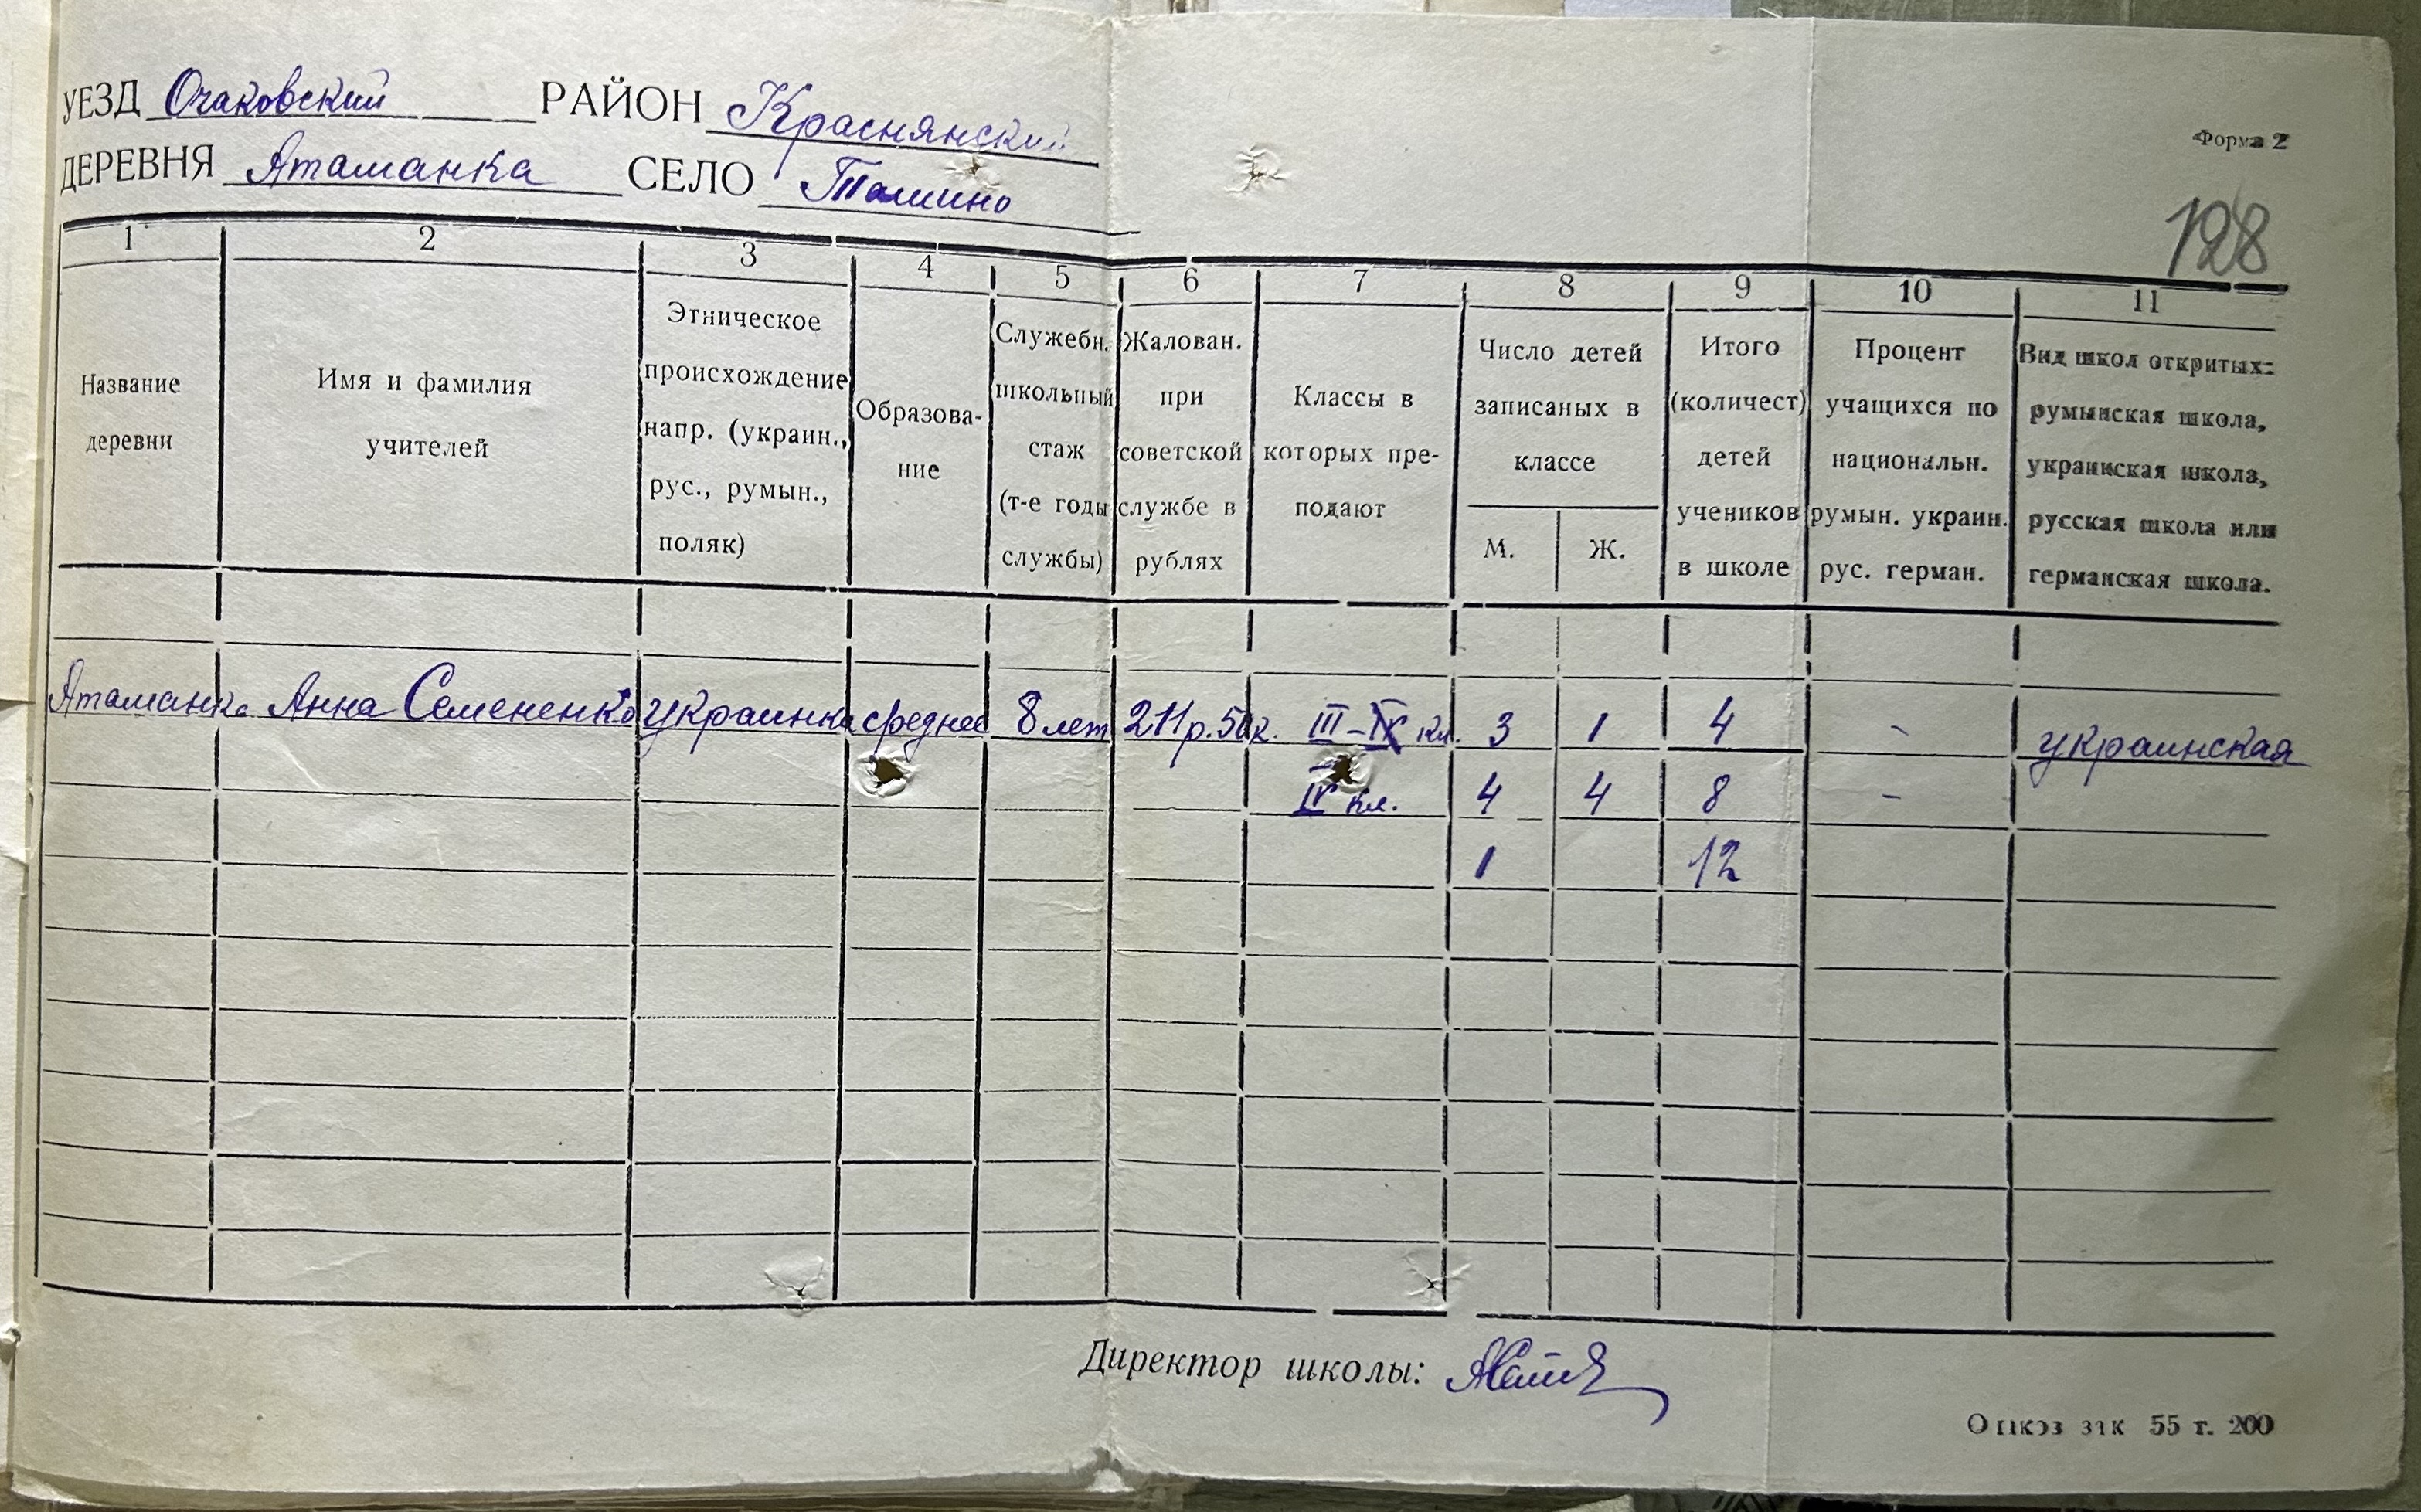 УЕЗД Очаковский РАЙОН Краснянский
ДЕРЕВНЯ Атаманка СЕЛО Ташино
Форма 2
128
1 2 3 4 5 6 7 8 9 10 11
Название
деревни
Имя и фамилия
учителей
Этническое
происхождение
напр. (украин.,
рус., румын.,
поляк)
Образова-
ние
Служебн.
школьный
стаж
(т-е годы
службы)
Жалован.
при
советской
службе в
рублях
Классы в
которых пре-
подают
Число детей
записаных в
классе
М. Ж.
Итого
(количест)
детей
учеников
в школе
Процент
учащихся по
национальн.
румын. украин.
рус. герман.
Вид школ откритых:
румынская школа,
украинская школа,
русская школа или
германская школа.
Атаманка Анна Семененко украинка среднее 8 лет 211р.50к. III-IV кл. 3 1 4 - украинская
IV кл. 4 4 8 -
1 12
Директор школы:
зак 55 т. 200